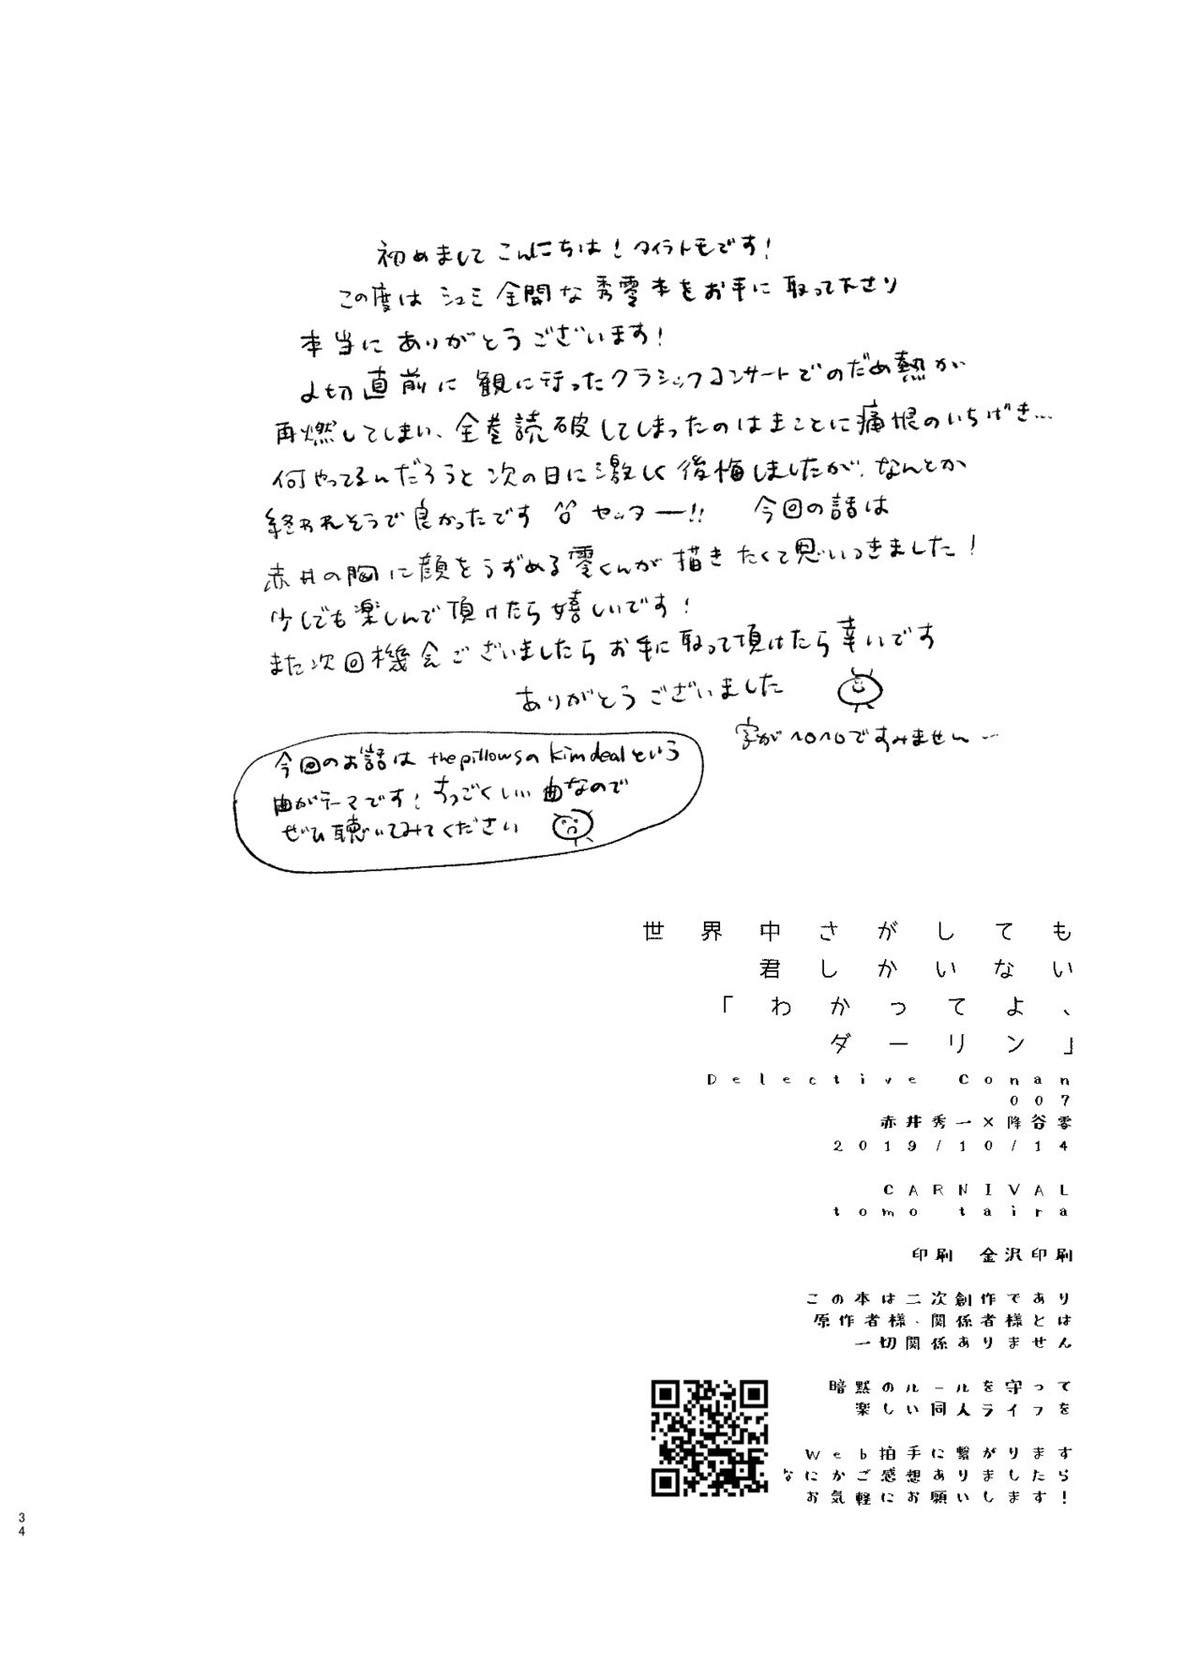 初めまして こんにちは！タイラトモです！
この度は シュミ 全開な 秀零本をお手に 取って下さり
本当に ありがとうございます！
〆切直前に 観に行ったクラシックコンサートでのだめ熱が
再燃してしまい、全巻読破してしまったのはまことに痛恨のいちげき…
何やってるんだろうと次の日に激しく後悔しましたが、なんとか
終われそうで良かったです セッター!! 今回の話は
赤井の胸に顔をうずめる零くんが描きたくて思いつきました！
少しでも楽しんで頂けたら嬉しいです！
また次回機会ございましたらお手に取って頂けたら幸いです
ありがとうございました
字がヘロヘロですみません…
今回のお話は the pillowsの kim dealという
曲がテーマです！すっごくいい曲なので
ぜひ聴いてみてください
世界中さがしても
君しかいない
「わかってよ、
ダーリン」
Detective Conan
007
赤井秀一×降谷零
2019/10/14
CARNIVAL
tomo taira
印刷 金沢印刷
この本は二次創作であり
原作者様・関係者様とは
一切関係ありません
暗黙のルールを守って
楽しい同人ライフを
Web拍手に繋がります
なにかご感想ありましたら
お気軽にお願いします！
34